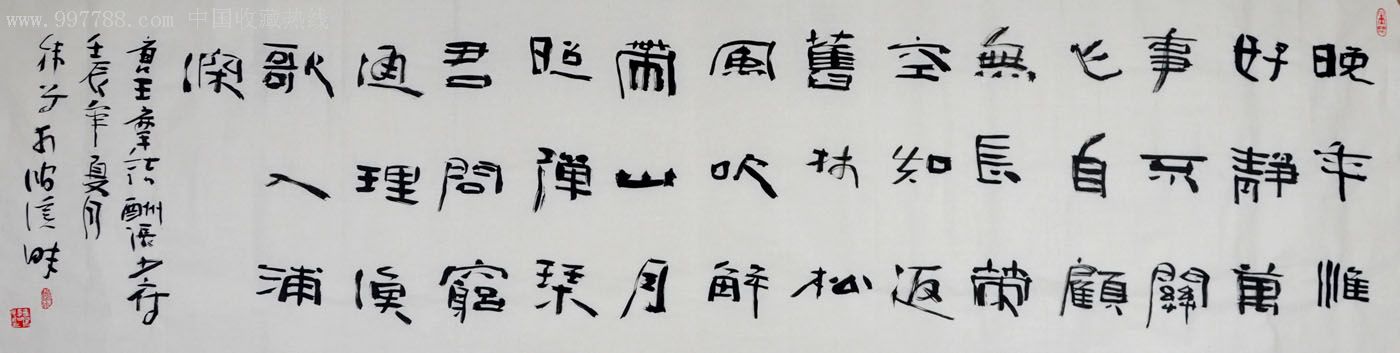 www.997788.com 中国收藏热线
晚年惟
好靜萬
事不關
心自顧
無長策
空知返
舊林松
風吹解
帶山月
照彈琴
君問窮
通理漁
歌入浦
深
書王摩詰酬張少府
壬辰年夏月
溪畔